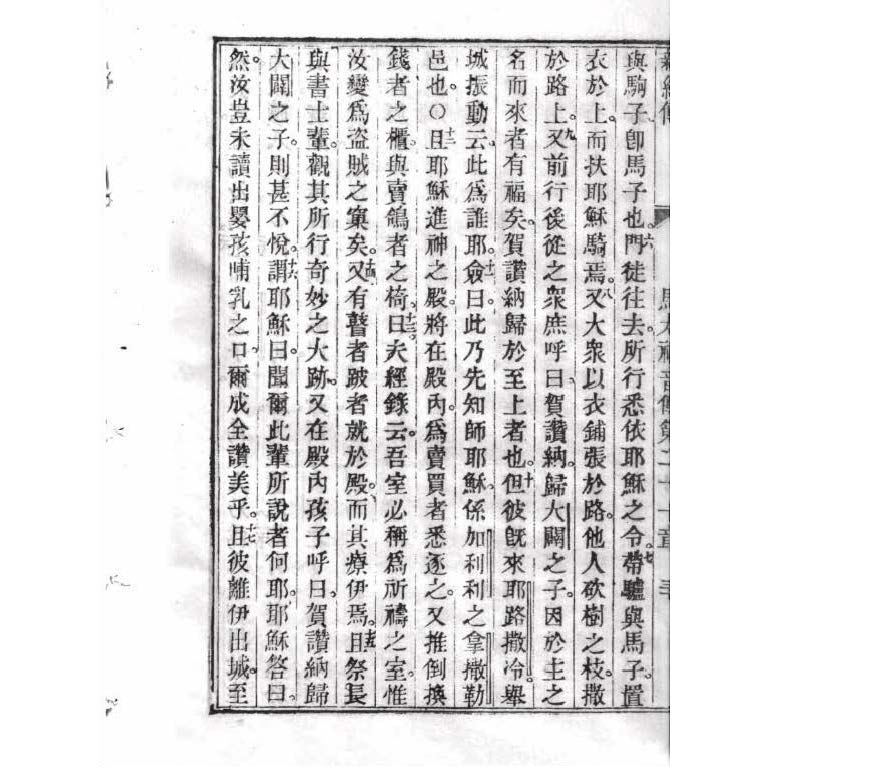 與駒子卽馬子也。六門徒往去。所行悉依耶穌之令。七帶驢與馬子。置
衣於上。而扶耶穌騎焉。八又大衆以衣鋪張於路。他人砍樹之枝。撒
於路上。九又前行後從之衆庶呼曰。賀讚納。歸大闢之子。因於主之
名而來者有福矣。賀讚納歸於至上者也。十但彼旣來耶路撒冷。舉
城振動云。此爲誰耶。十一僉曰。此乃先知師耶穌。係加利利之拿撒勒
邑也。○十二且耶穌進神之殿。將在殿內。爲賣買者悉逐之。又推倒換
錢者之櫃。與賣鴿者之椅。十三曰。夫經錄云。吾室必稱爲祈禱之室。惟
汝變爲盜賊之窠矣。十四又有瞽者跛者就於殿。而其療伊焉。十五且祭長
與書士輩。觀其所行奇妙之大跡。又在殿內孩子呼曰。賀讚納歸
大闢之子。則甚不悅。十六謂耶穌曰。聞爾此輩所說者何耶。耶穌答曰。
然。汝豈未讀出嬰孩哺乳之口。爾成全讚美乎。十七且彼離伊出城。至